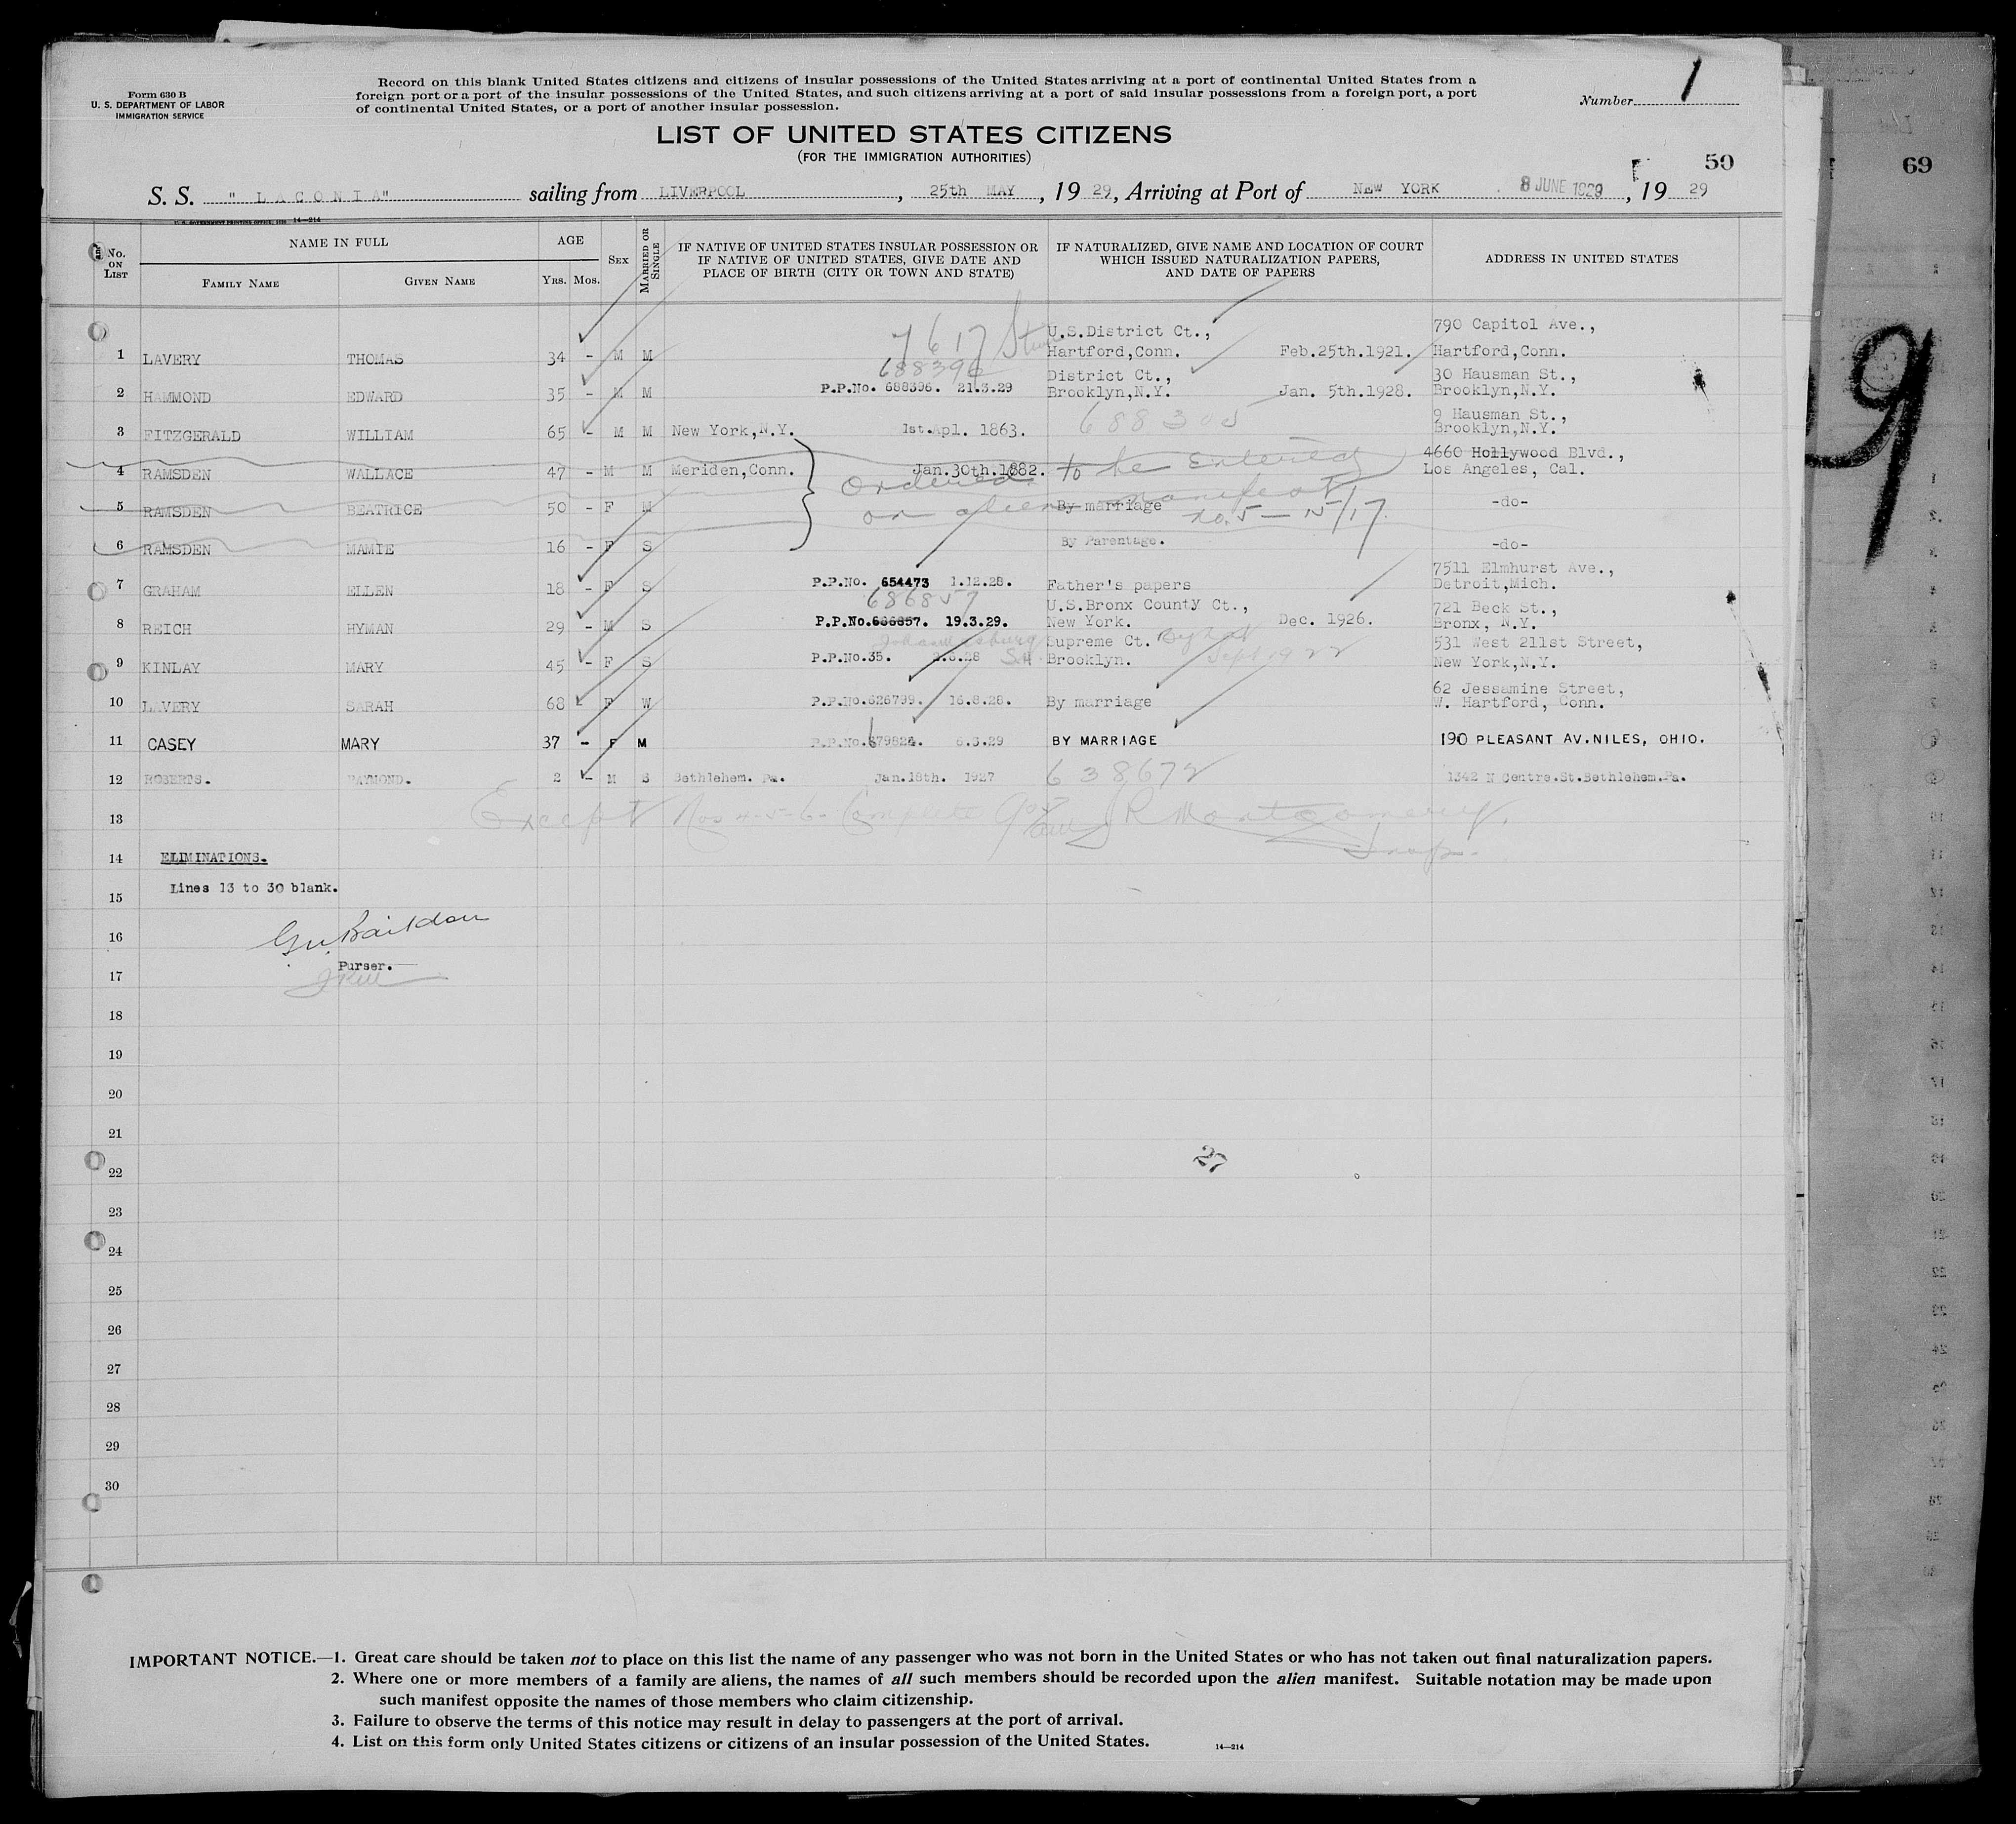 Form 630 B
U. S. DEPARTMENT OF LABOR
IMMIGRATION SERVICE
Record on this blank United States citizens and citizens of insular possessions of the United States arriving at a port of continental United States from a
foreign port or a port of the insular possessions of the United States, and such citizens arriving at a port of said insular possessions from a foreign port, a port
of continental United States, or a port of another insular possession.
Number 1
LIST OF UNITED STATES CITIZENS
(FOR THE IMMIGRATION AUTHORITIES)
50
69
S. S. " LACONIA" sailing from LIVERPOOL, 25th MAY, 19 29, Arriving at Port of NEW YORK . 8 JUNE 1929, 19 29
U. S. GOVERNMENT PRINTING OFFICE 14—214
No. ON LIST
NAME IN FULL
FAMILY NAME GIVEN NAME
AGE
YRS. MOS.
SEX
MARRIED OR SINGLE
IF NATIVE OF UNITED STATES INSULAR POSSESSION OR
IF NATIVE OF UNITED STATES, GIVE DATE AND
PLACE OF BIRTH (CITY OR TOWN AND STATE)
IF NATURALIZED, GIVE NAME AND LOCATION OF COURT
WHICH ISSUED NATURALIZATION PAPERS,
AND DATE OF PAPERS
ADDRESS IN UNITED STATES
7617 U.S.District Ct., 790 Capitol Ave.,
1 LAVERY THOMAS 34 - M M Hartford,Conn. Feb.25th.1921. Hartford,Conn.
688396 District Ct., 30 Hausman St.,
2 HAMMOND EDWARD 35 - M M P.P.No. 688396. 21.3.29 Brooklyn,N.Y. Jan. 5th.1928. Brooklyn,N.Y.
9 Hausman St.,
3 FITZGERALD WILLIAM 65 - M M New York,N.Y. 1st.Apl. 1863. 688305 Brooklyn,N.Y.
4660 Hollywood Blvd.,
4 RAMSDEN WALLACE 47 - M M Meriden,Conn. Jan.30th.1882. Los Angeles, Cal.
Ordered to be entered
on alien manifest
no. 5 - 15/17
5 RAMSDEN BEATRICE 50 - F M By marriage -do-
6 RAMSDEN MAMIE 16 - F S By Parentage. -do-
7511 Elmhurst Ave.,
7 GRAHAM ELLEN 18 - F S P.P.No. 654473 1.12.28. Father's papers Detroit,Mich.
686857 U.S.Bronx County Ct., 721 Beck St.,
8 REICH HYMAN 29 - M S P.P.No.686857. 19.3.29. New York. Dec. 1926. Bronx, N.Y.
Johannesburg Supreme Ct. 531 West 211st Street,
9 KINLAY MARY 45 - F S P.P.No.35. 2.6.28 SA Brooklyn. Sept 1922 New York,N.Y.
62 Jessamine Street,
10 LAVERY SARAH 68 - F W P.P.No.626799. 16.8.28. By marriage W. Hartford, Conn.
11 CASEY MARY 37 - F M P.P.No.679824. 6.3.29 BY MARRIAGE 190 PLEASANT AV.NILES, OHIO.
12 ROBERTS. RAYMOND. 2 - M S Bethlehem. Pa. Jan.18th. 1927 638672 1342 N Centre.St.Bethlehem.Pa.
13 Except Nos 4-5-6- Complete R Montgomery.
Insp.
14 ELIMINATIONS.
15 Lines 13 to 30 blank.
16
Purser.
17
18
19
20
21
22 27
23
24
25
26
27
28
29
30
IMPORTANT NOTICE.—1. Great care should be taken not to place on this list the name of any passenger who was not born in the United States or who has not taken out final naturalization papers.
2. Where one or more members of a family are aliens, the names of all such members should be recorded upon the alien manifest. Suitable notation may be made upon
such manifest opposite the names of those members who claim citizenship.
3. Failure to observe the terms of this notice may result in delay to passengers at the port of arrival.
4. List on this form only United States citizens or citizens of an insular possession of the United States. 14—214